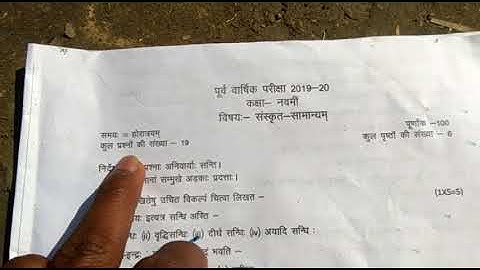 पूर्व वार्षिक परीक्षा 2019–20
कक्षा– नवमीं
विषयः– संस्कृत–सामान्यम्
समयः – होरात्रयम् पूर्णांक –100
कुल प्रश्नों की संख्या – 19 कुल पृष्ठों की संख्या – 6
प्रश्नाः अनिवार्याः सन्ति।
सम्मुखे अङ्काः प्रदत्ताः।
उचित विकल्पं चित्वा लिखत – (1X5=5)
इत्यत्र सन्धि अस्ति –
(ii) वृद्धिसन्धिः (iii) दीर्घ सन्धिः (iv) अयादि सन्धि :
भवति –